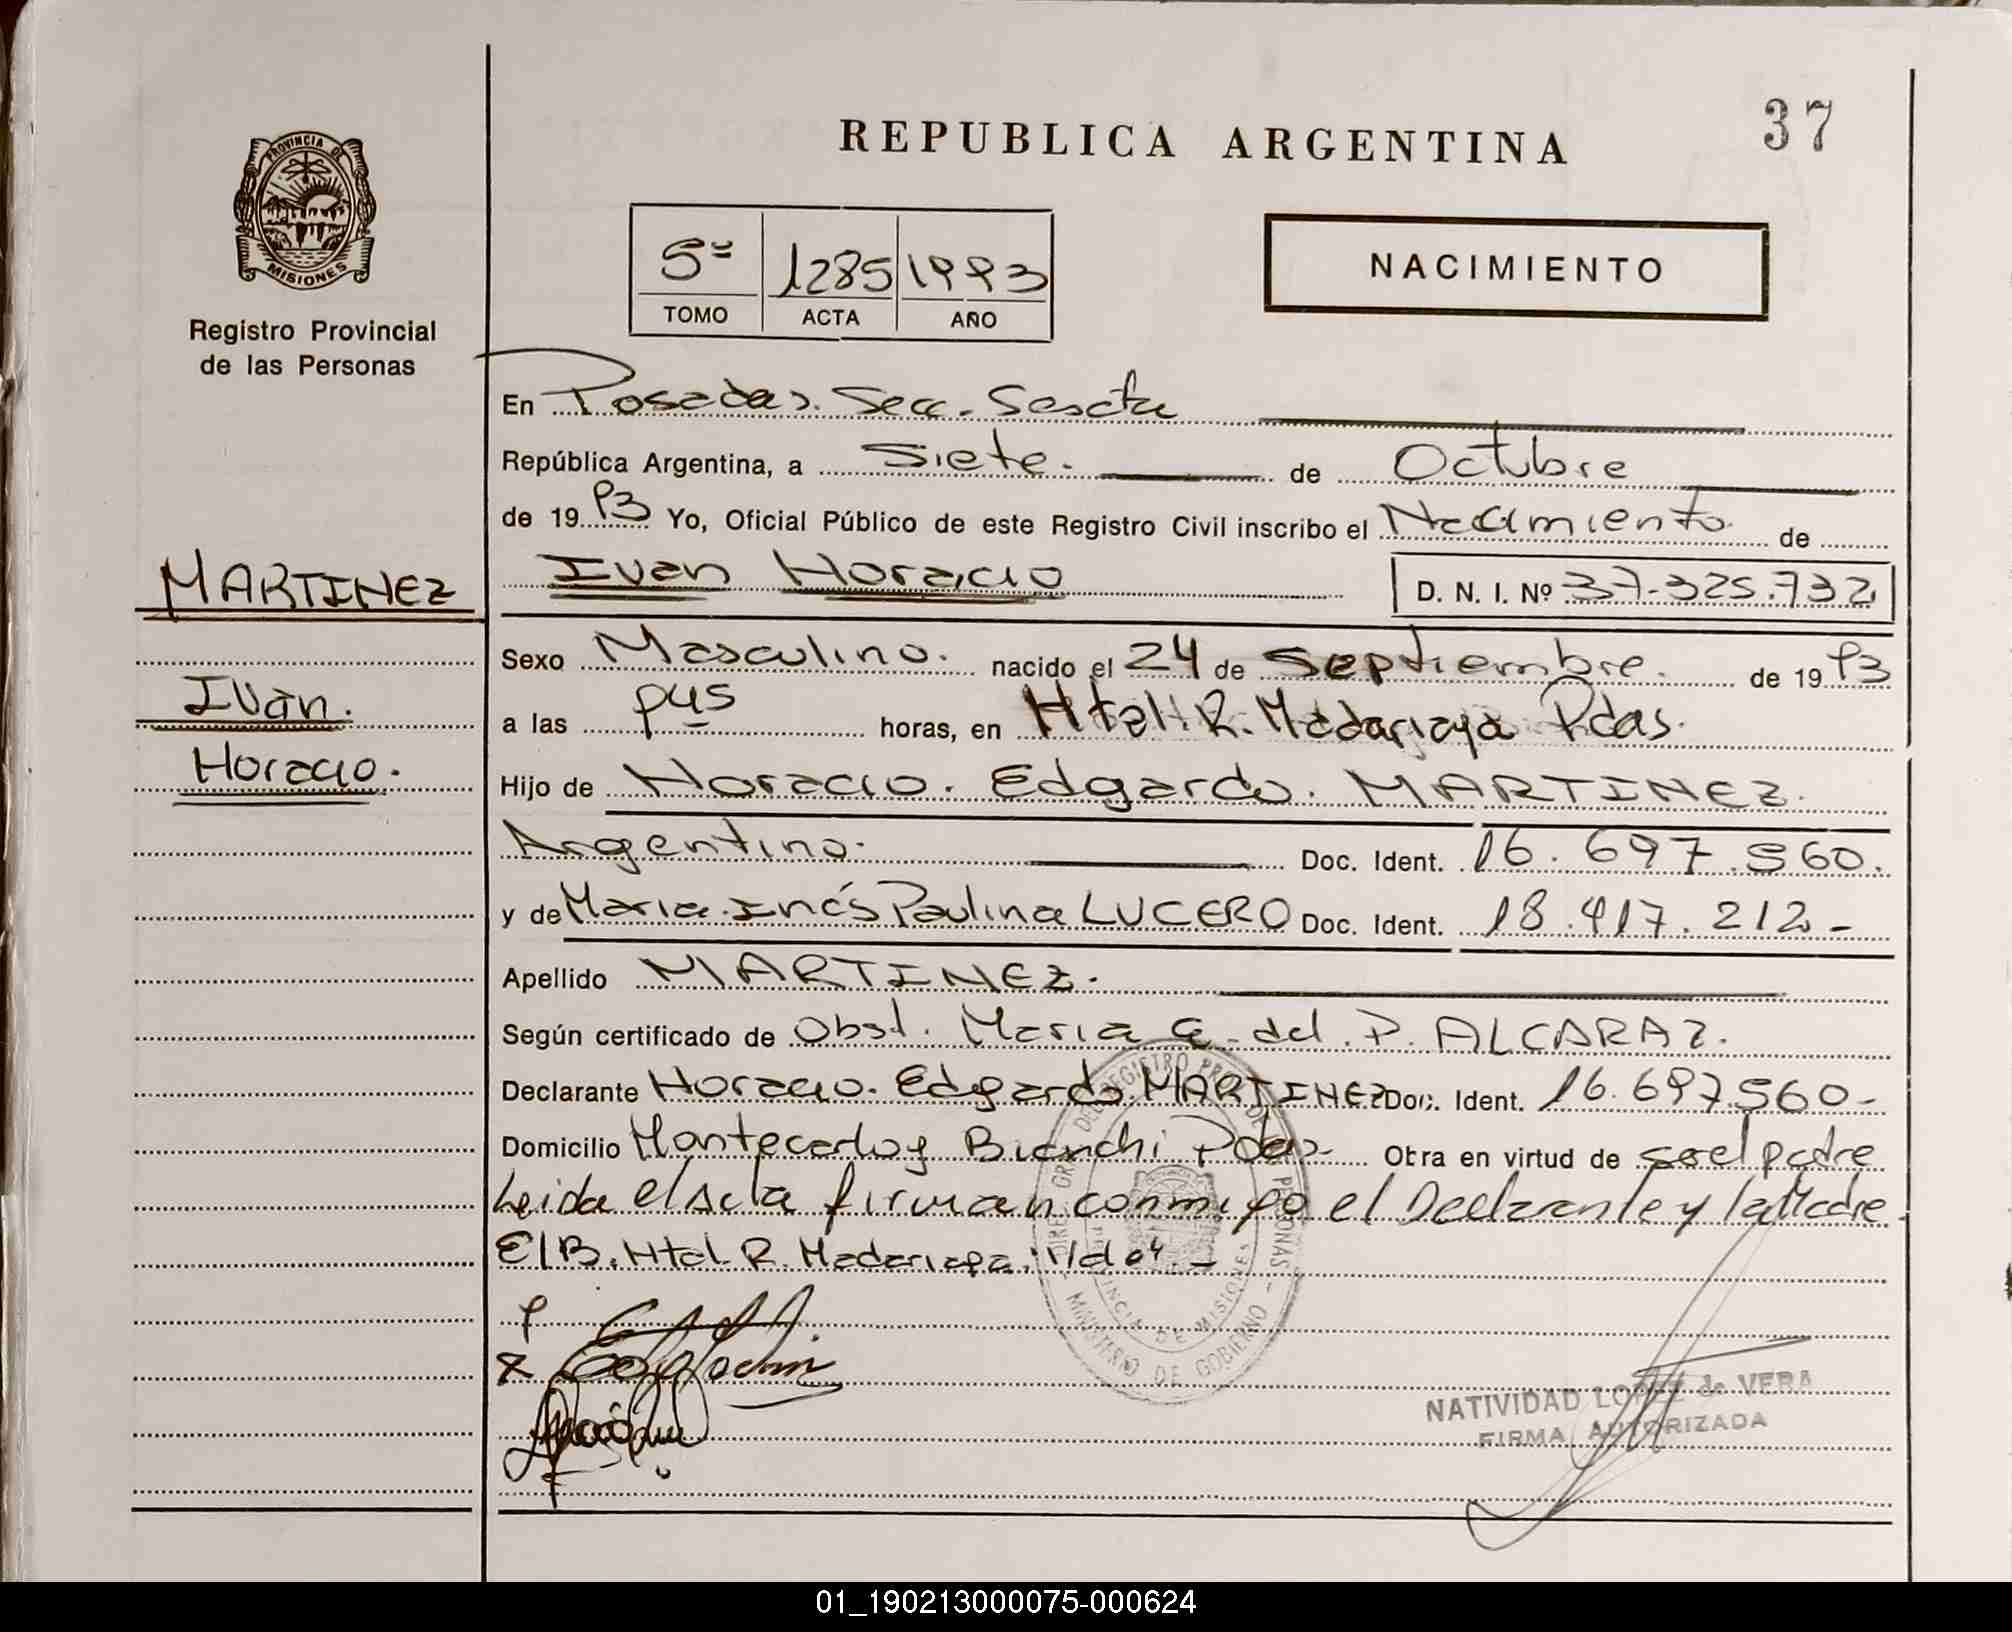 37
REPUBLICA ARGENTINA
PROVINCIA DE
MISIONES
Registro Provincial
de las Personas
5º 1285 1993
TOMO ACTA AÑO
NACIMIENTO
En Posadas. Secc. Sexta
República Argentina, a Siete. de Octubre
de 1993 Yo, Oficial Público de este Registro Civil inscribo el Nacimiento de
MARTINEZ
Ivan Horacio D. N. I. Nº 37.325.732
Sexo Masculino. nacido el 24 de Septiembre. de 1993
Iván.
a las 9,45 horas, en Htal. R. Madariaga Pdas.
Horacio.
Hijo de Horacio. Edgardo. MARTINEZ.
Argentino. Doc. Ident. 16.697.560.
y de Maria Inés Paulina LUCERO Doc. Ident. 18.417.212-
Apellido MARTINEZ.
Según certificado de Obst. Maria C. del P. ALCARAZ.
Declarante Horacio. Edgardo MARTINEZ Doc. Ident. 16.697.560-
Domicilio Montecarlo y Bianchi Pdas. Obra en virtud de ser el padre
Leida el acta firman conmigo el Declarante y la Madre.
E/B. Htal R. Madariaga.
MINISTERIO DE GOBIERNO
PROVINCIA DE MISIONES
NATIVIDAD LOPEZ de VERA
FIRMA AUTORIZADA
01_190213000075-000624